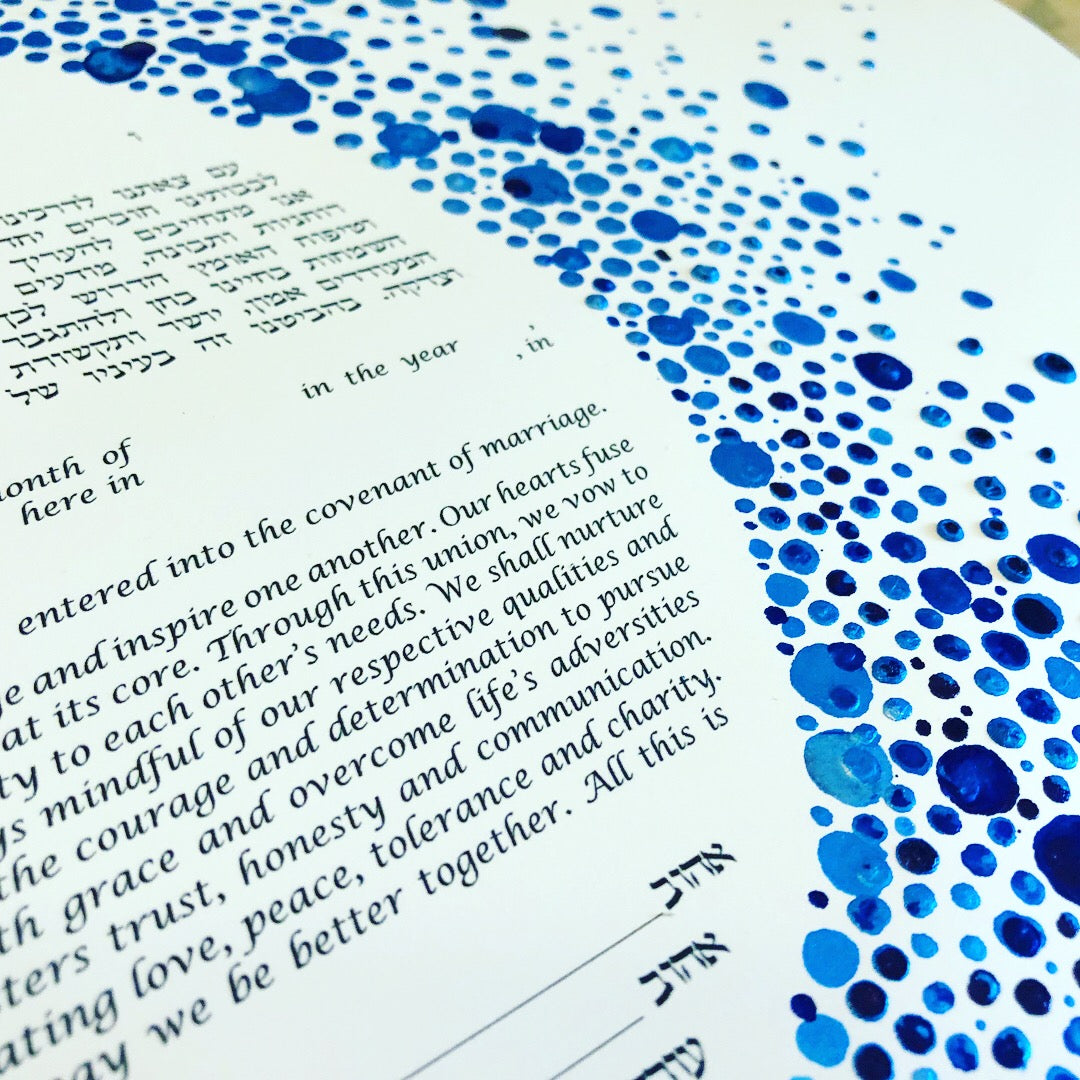 ו
עם צאתנו לדרכינו
לבבותינו חוברים יחד
אנו מתחייבים להעריך
רוחניות ותבונה, מודעים
וטיפוח האומץ הדרוש לכך
השמחות בחיינו בחן ולהתגבר
המעודדים אמון, יושר ותקשורת
וצדקה. בהביטנו זה בעיניו של
in the year , in
onth of
here in
entered into the covenant of marriage.
ge and inspire one another. Our hearts fuse
at its core. Through this union, we vow to
ty to each other's needs. We shall nurture
ys mindful of our respective qualities and
the courage and determination to pursue
th grace and overcome life's adversities
sters trust, honesty and communication.
ating love, peace, tolerance and charity.
ay we be better together. All this is
אהוב
אהוב